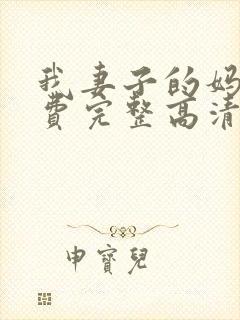 我妻子的妈
费完整高清
申宝儿